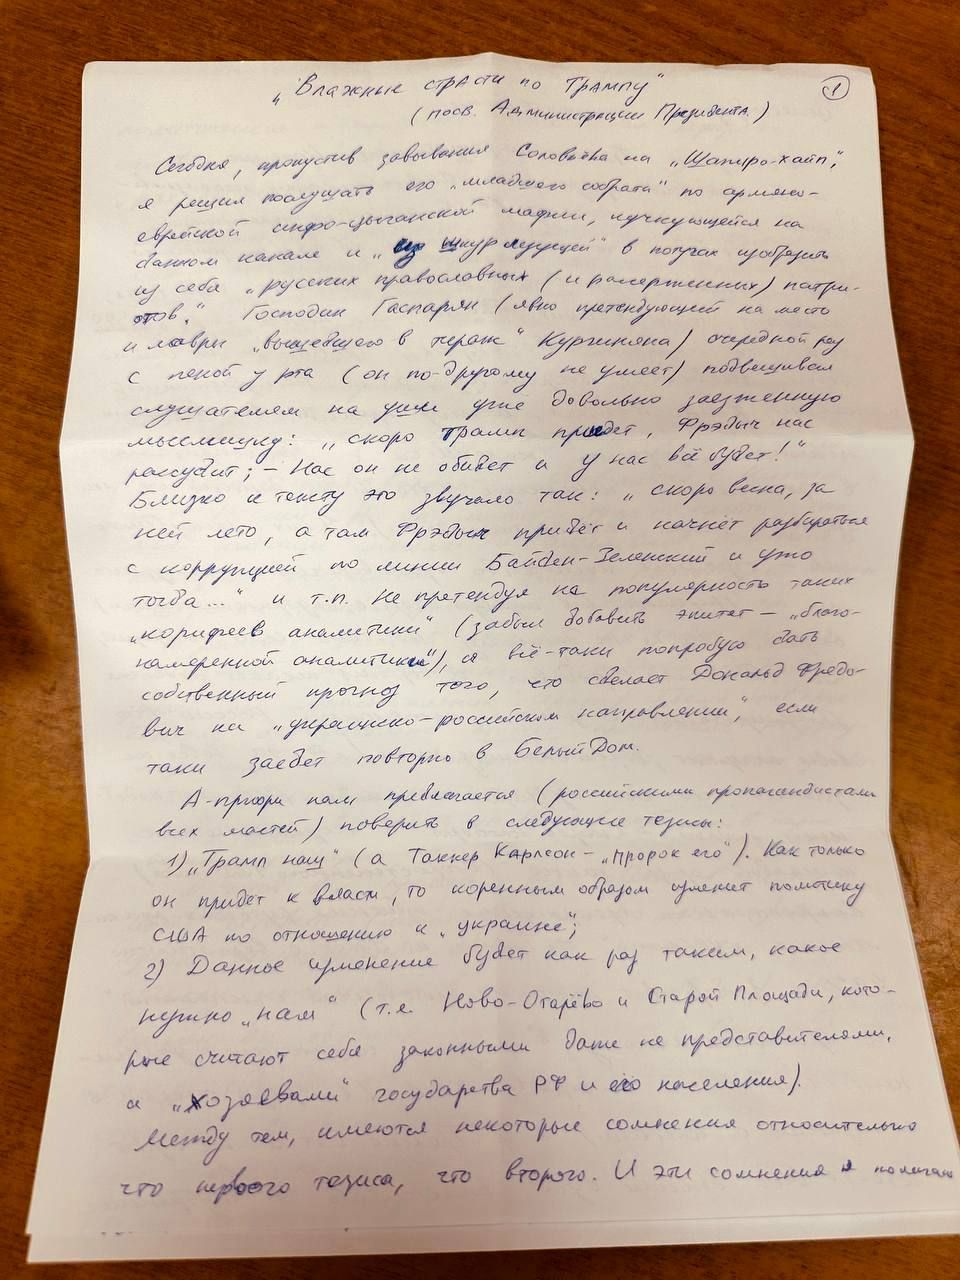 „Влажные страсти по Трампу"
1
(посв. Администрации Президента.)
Сегодня, пропустив завывания Соловьёва на „Шапиро-хайп",
я решил послушать его „младшего собрата" по армяно-
еврейской инфо-цыганской мафии, кучкующейся на
данном канале и „из шкур лезущей" в потугах изобразить
из себя „русских православных (и рассерженных) патри-
отов". Господин Гаспарян (явно претендующий на место
и лавры „вышедшего в тираж" Кургиняна) очередной раз
с пеной у рта (он по-другому не умеет) подвешивал
слушателям на уши уже довольно заезженную
мыслишку: „скоро Трамп придет, Фрэдыч нас
рассудит; – Нас он не обидет и у нас всё будет!"
Близко к тексту это звучало так: „скоро весна, за
ней лето, а там Фрэдыч придёт и начнёт разбираться
с коррупцией по линии Байден-Зеленский и ужо
тогда..." и т.п. Не претендуя на популярность таких
„корифеев аналитики" (забыл добавить эпитет – „благо-
намеренной аналитики"), я всё-таки попробую дать
собственный прогноз того, что сделает Дональд Фредо-
вич на „украинско-российском направлении", если
таки заедет повторно в Белый Дом.
А-приори нам предлагается (российскими пропагандистами
всех мастей) поверить в следующие тезисы:
1) „Трамп наш" (а Таккер Карлсон – „пророк его"). Как только
он придет к власти, то коренным образом изменит политику
США по отношению к „украине";
2) Данное изменение будет как раз таким, какое
нужно „нам" (т.е. Ново-Огарёво и Старой Площади, кото-
рые считают себя законными даже не представителями,
а „хозяевами" государства РФ и его населения).
Между тем, имеются некоторые сомнения относительно
что первого тезиса, что второго. И эти сомнения я полагаю